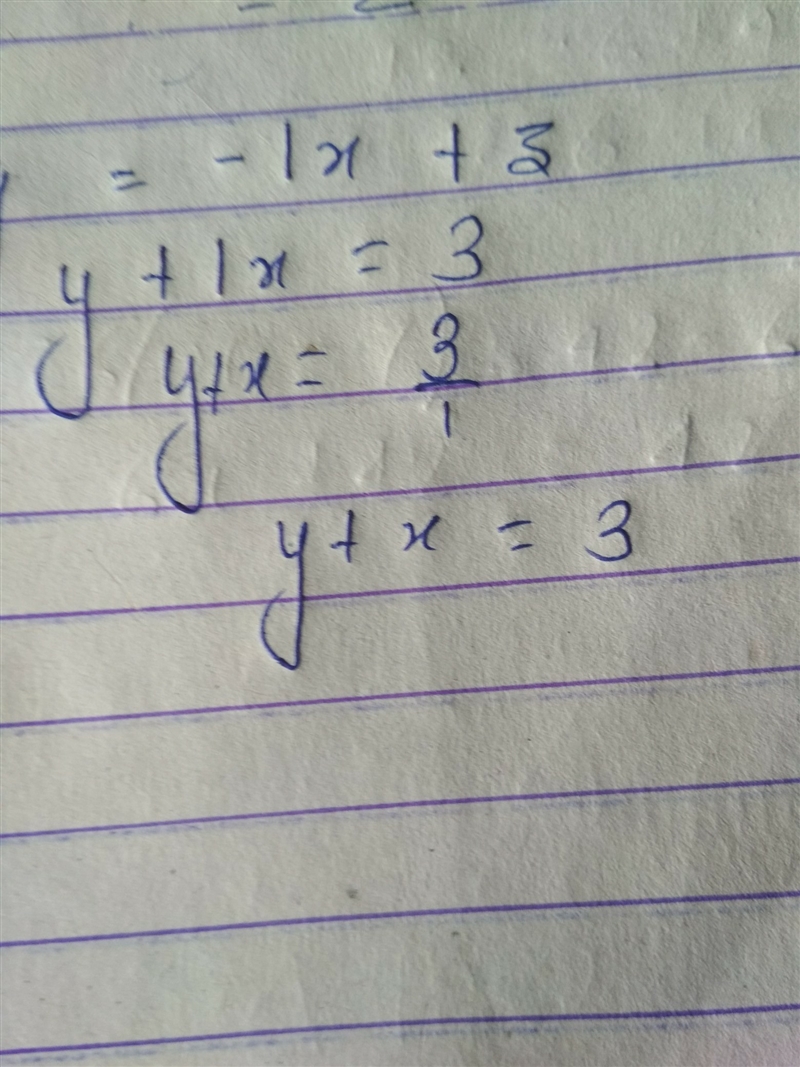 = -1x + 3
y + 1x = 3
y+x = 3/1
y + x = 3